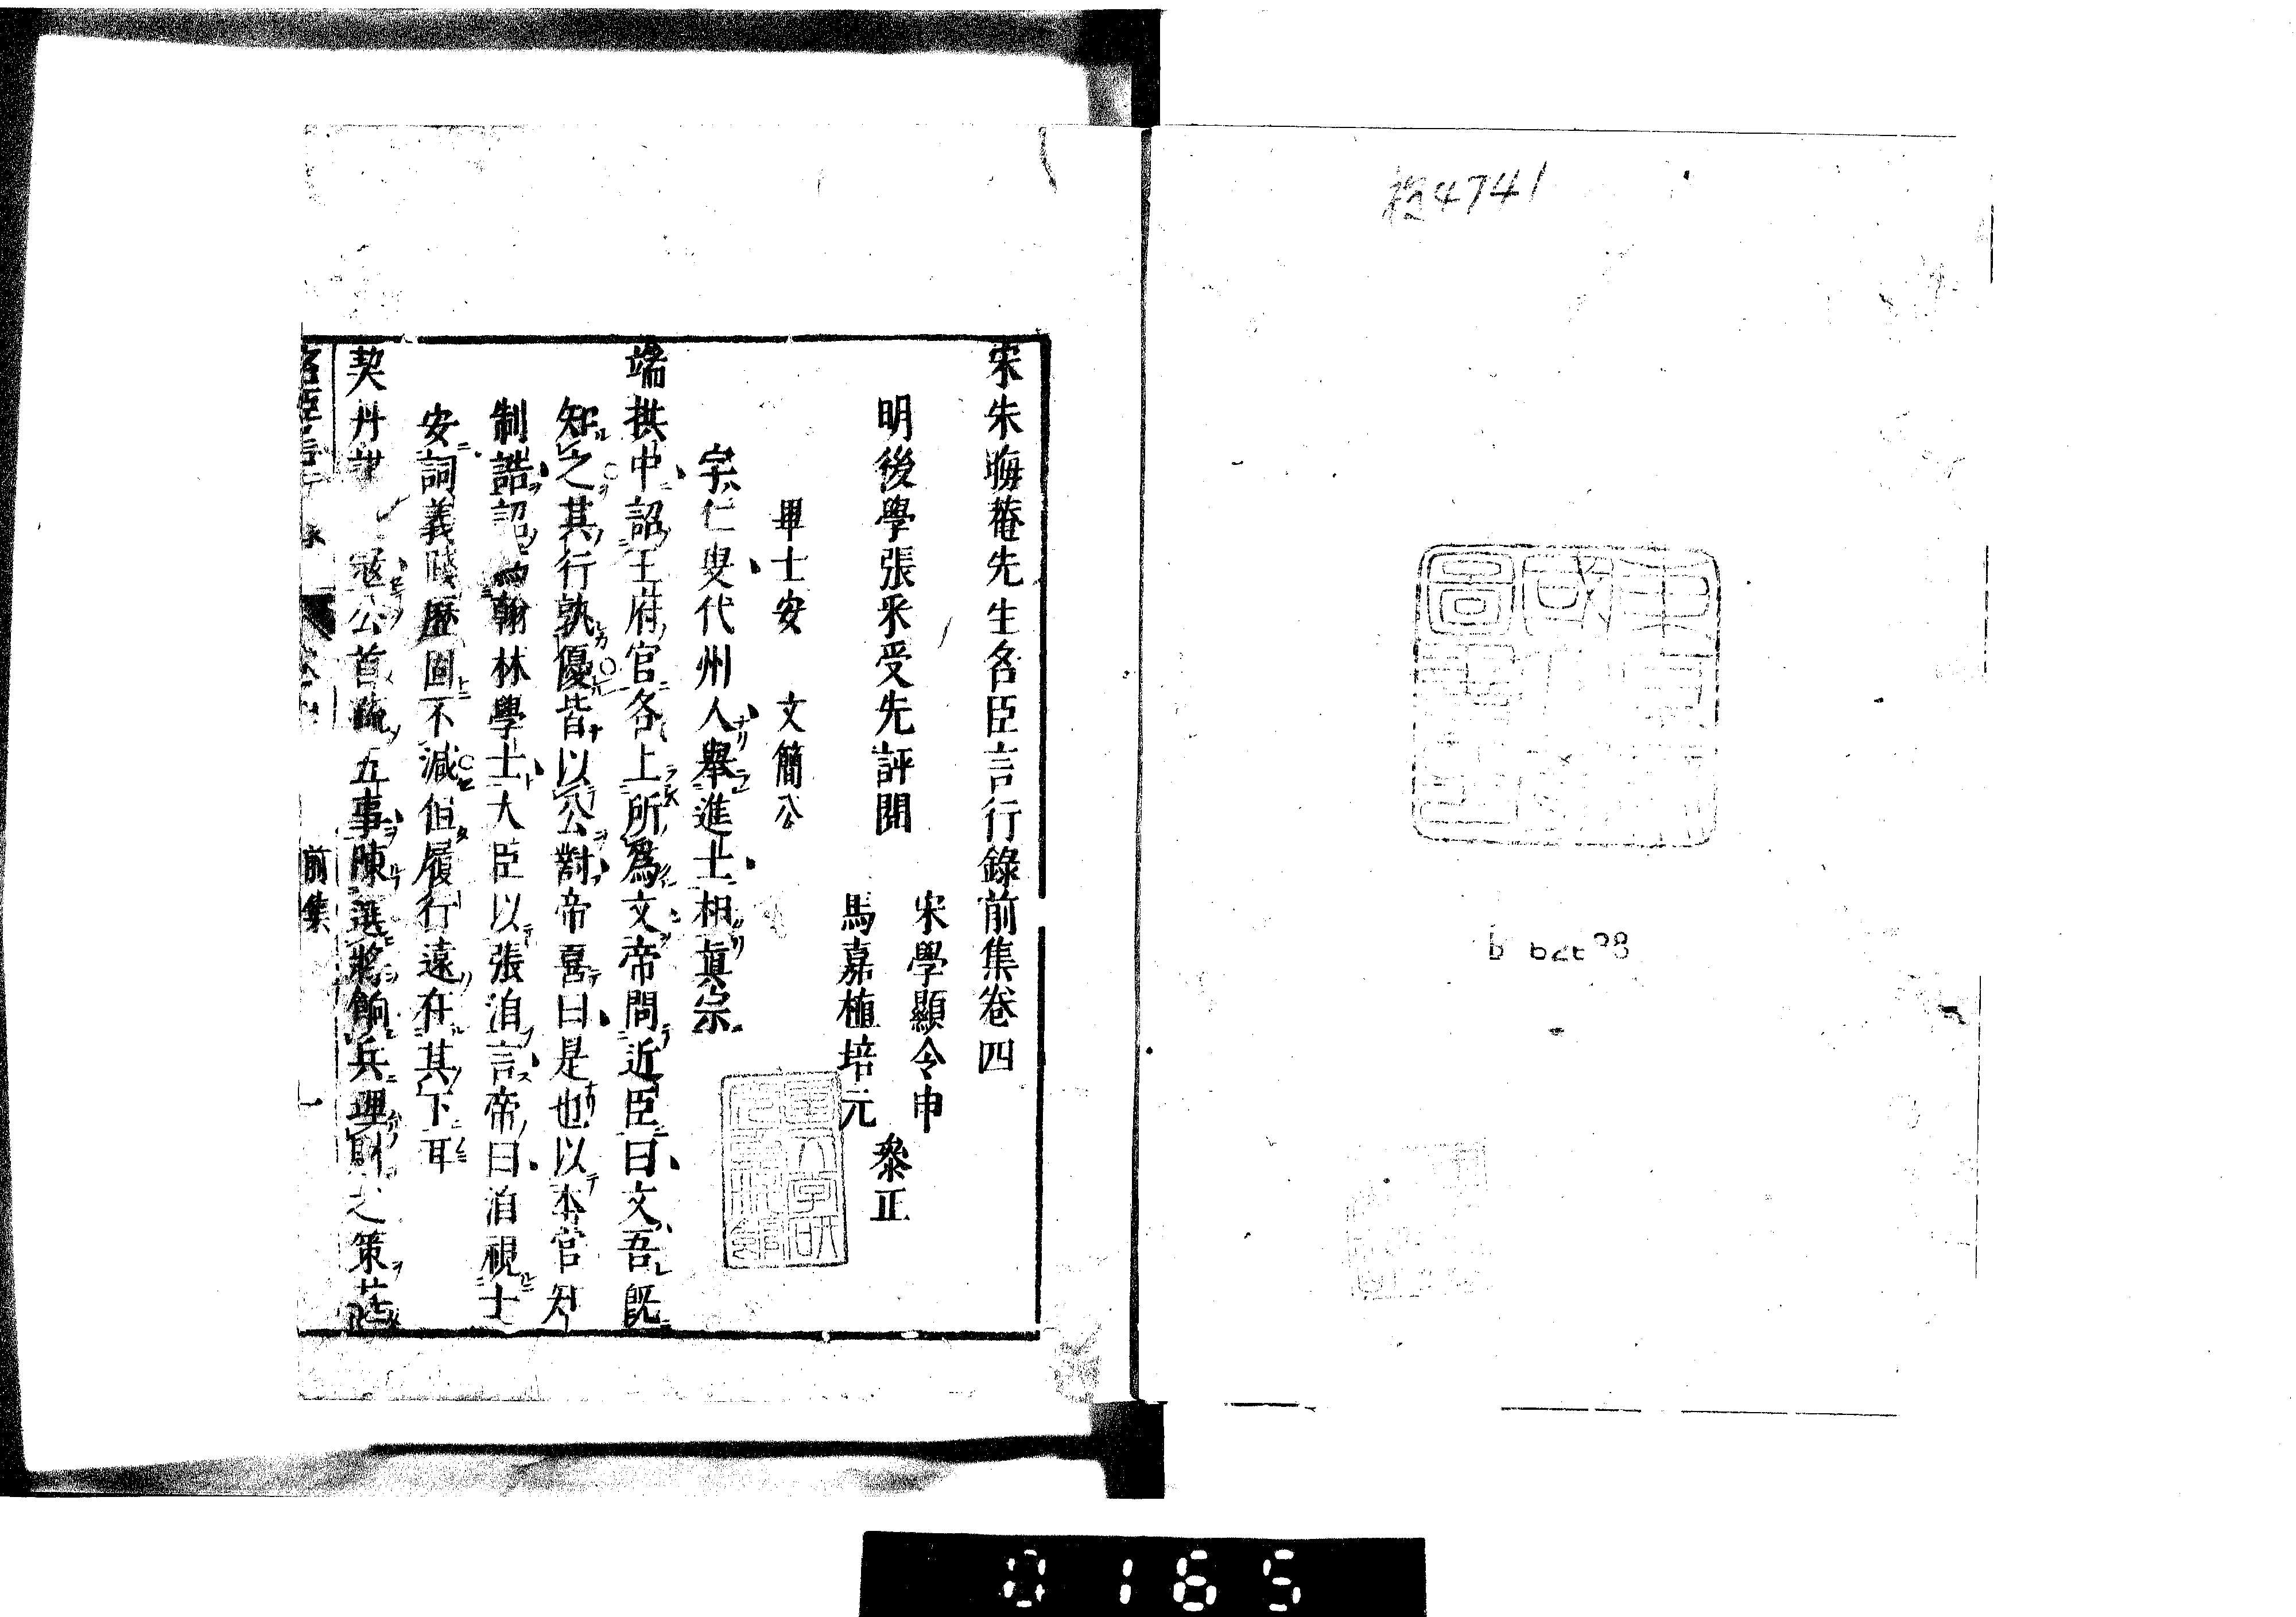 4741
宋朱晦菴先生名臣言行錄前集卷四
明後學張采受先評閱
宋學顯令申
馬嘉植培元
叅正
畢士安 文簡公
字仁叟代州人舉進士相眞宗
端拱中詔王府官各上所爲文帝問近臣曰文吾旣
知之其行孰優皆以公對帝喜曰是也以本官知
制誥詔爲翰林學士大臣以張洎言帝曰洎視士
安詞義踐歷固不減但履行遠在其下耳
契丹謀 寇公首疏五事陳選將餉兵理財之策
名臣言行
前集
一
0165